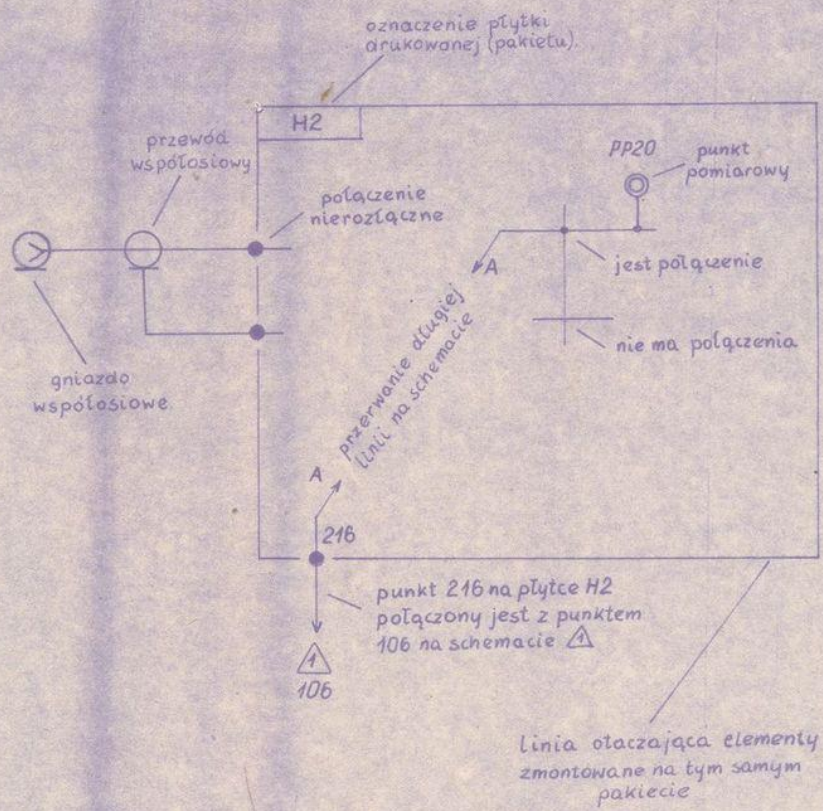 oznaczenie płytki
drukowanej (pakietu).
H2
przewód
współosiowy
połączenie
nierozłączne
PP20
punkt
pomiarowy
A
jest połączenie
nie ma połączenia
gniazdo
współosiowe
przerwanie długiej
linii na schemacie
A
216
punkt 216 na płytce H2
połączony jest z punktem
106 na schemacie 1
1
106
linia otaczająca elementy
zmontowane na tym samym
pakiecie